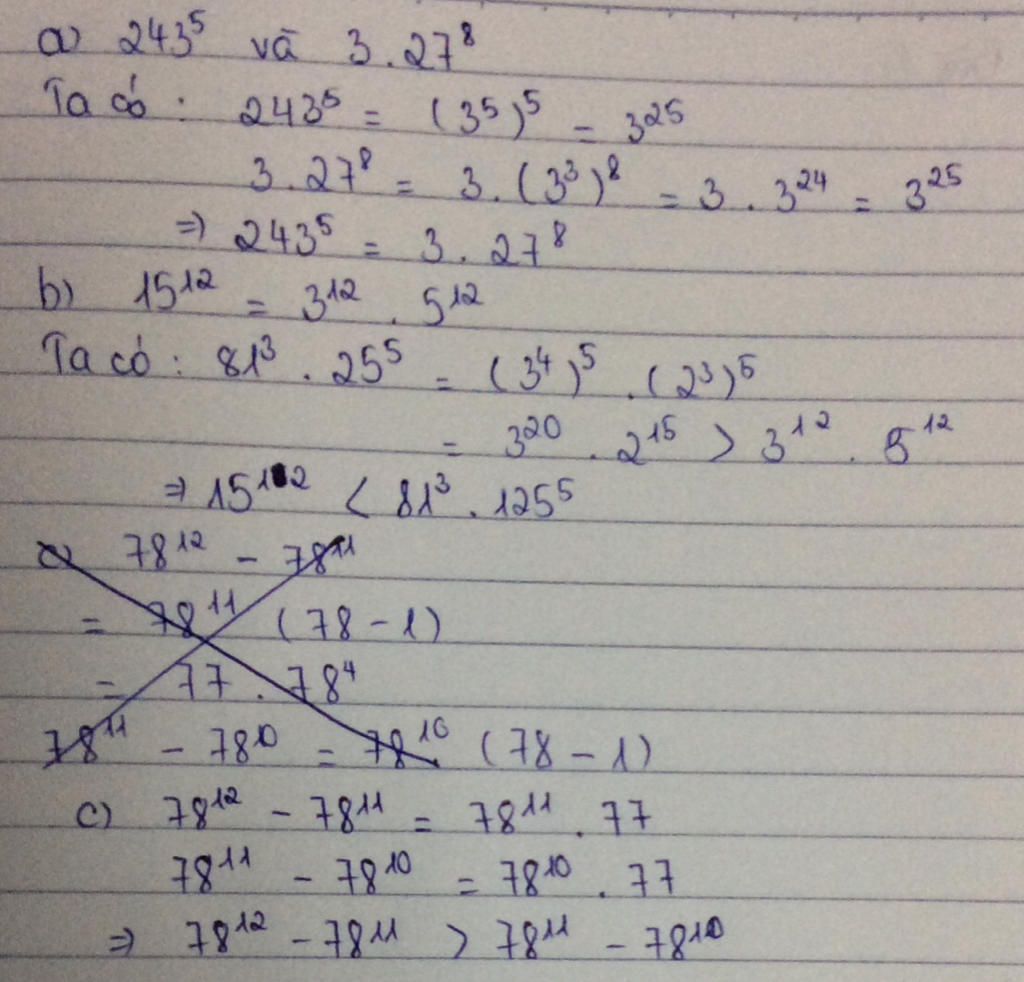 a) 243⁵ vã 3 . 27⁸
Ta có : 243⁵ = (3⁵)⁵ = 3²⁵
3 . 27⁸ = 3 . (3³)⁸ = 3 . 3²⁴ = 3²⁵
⇒ 243⁵ = 3 . 27⁸
b) 15¹² = 3¹² . 5¹²
Ta có : 81³ . 25⁵ = (3⁴)⁵ . (2³)⁵
= 3²⁰ . 2¹⁵ > 3¹² . 5¹²
⇒ 15¹² < 81³ . 125⁵
c) 78¹² - 78¹¹
= 78¹¹ (78 - 1)
= 77 . 78⁴
78¹¹ - 78¹⁰ = 78¹⁰ (78 - 1)
c) 78¹² - 78¹¹ = 78¹¹ . 77
78¹¹ - 78¹⁰ = 78¹⁰ . 77
⇒ 78¹² - 78¹¹ > 78¹¹ - 78¹⁰